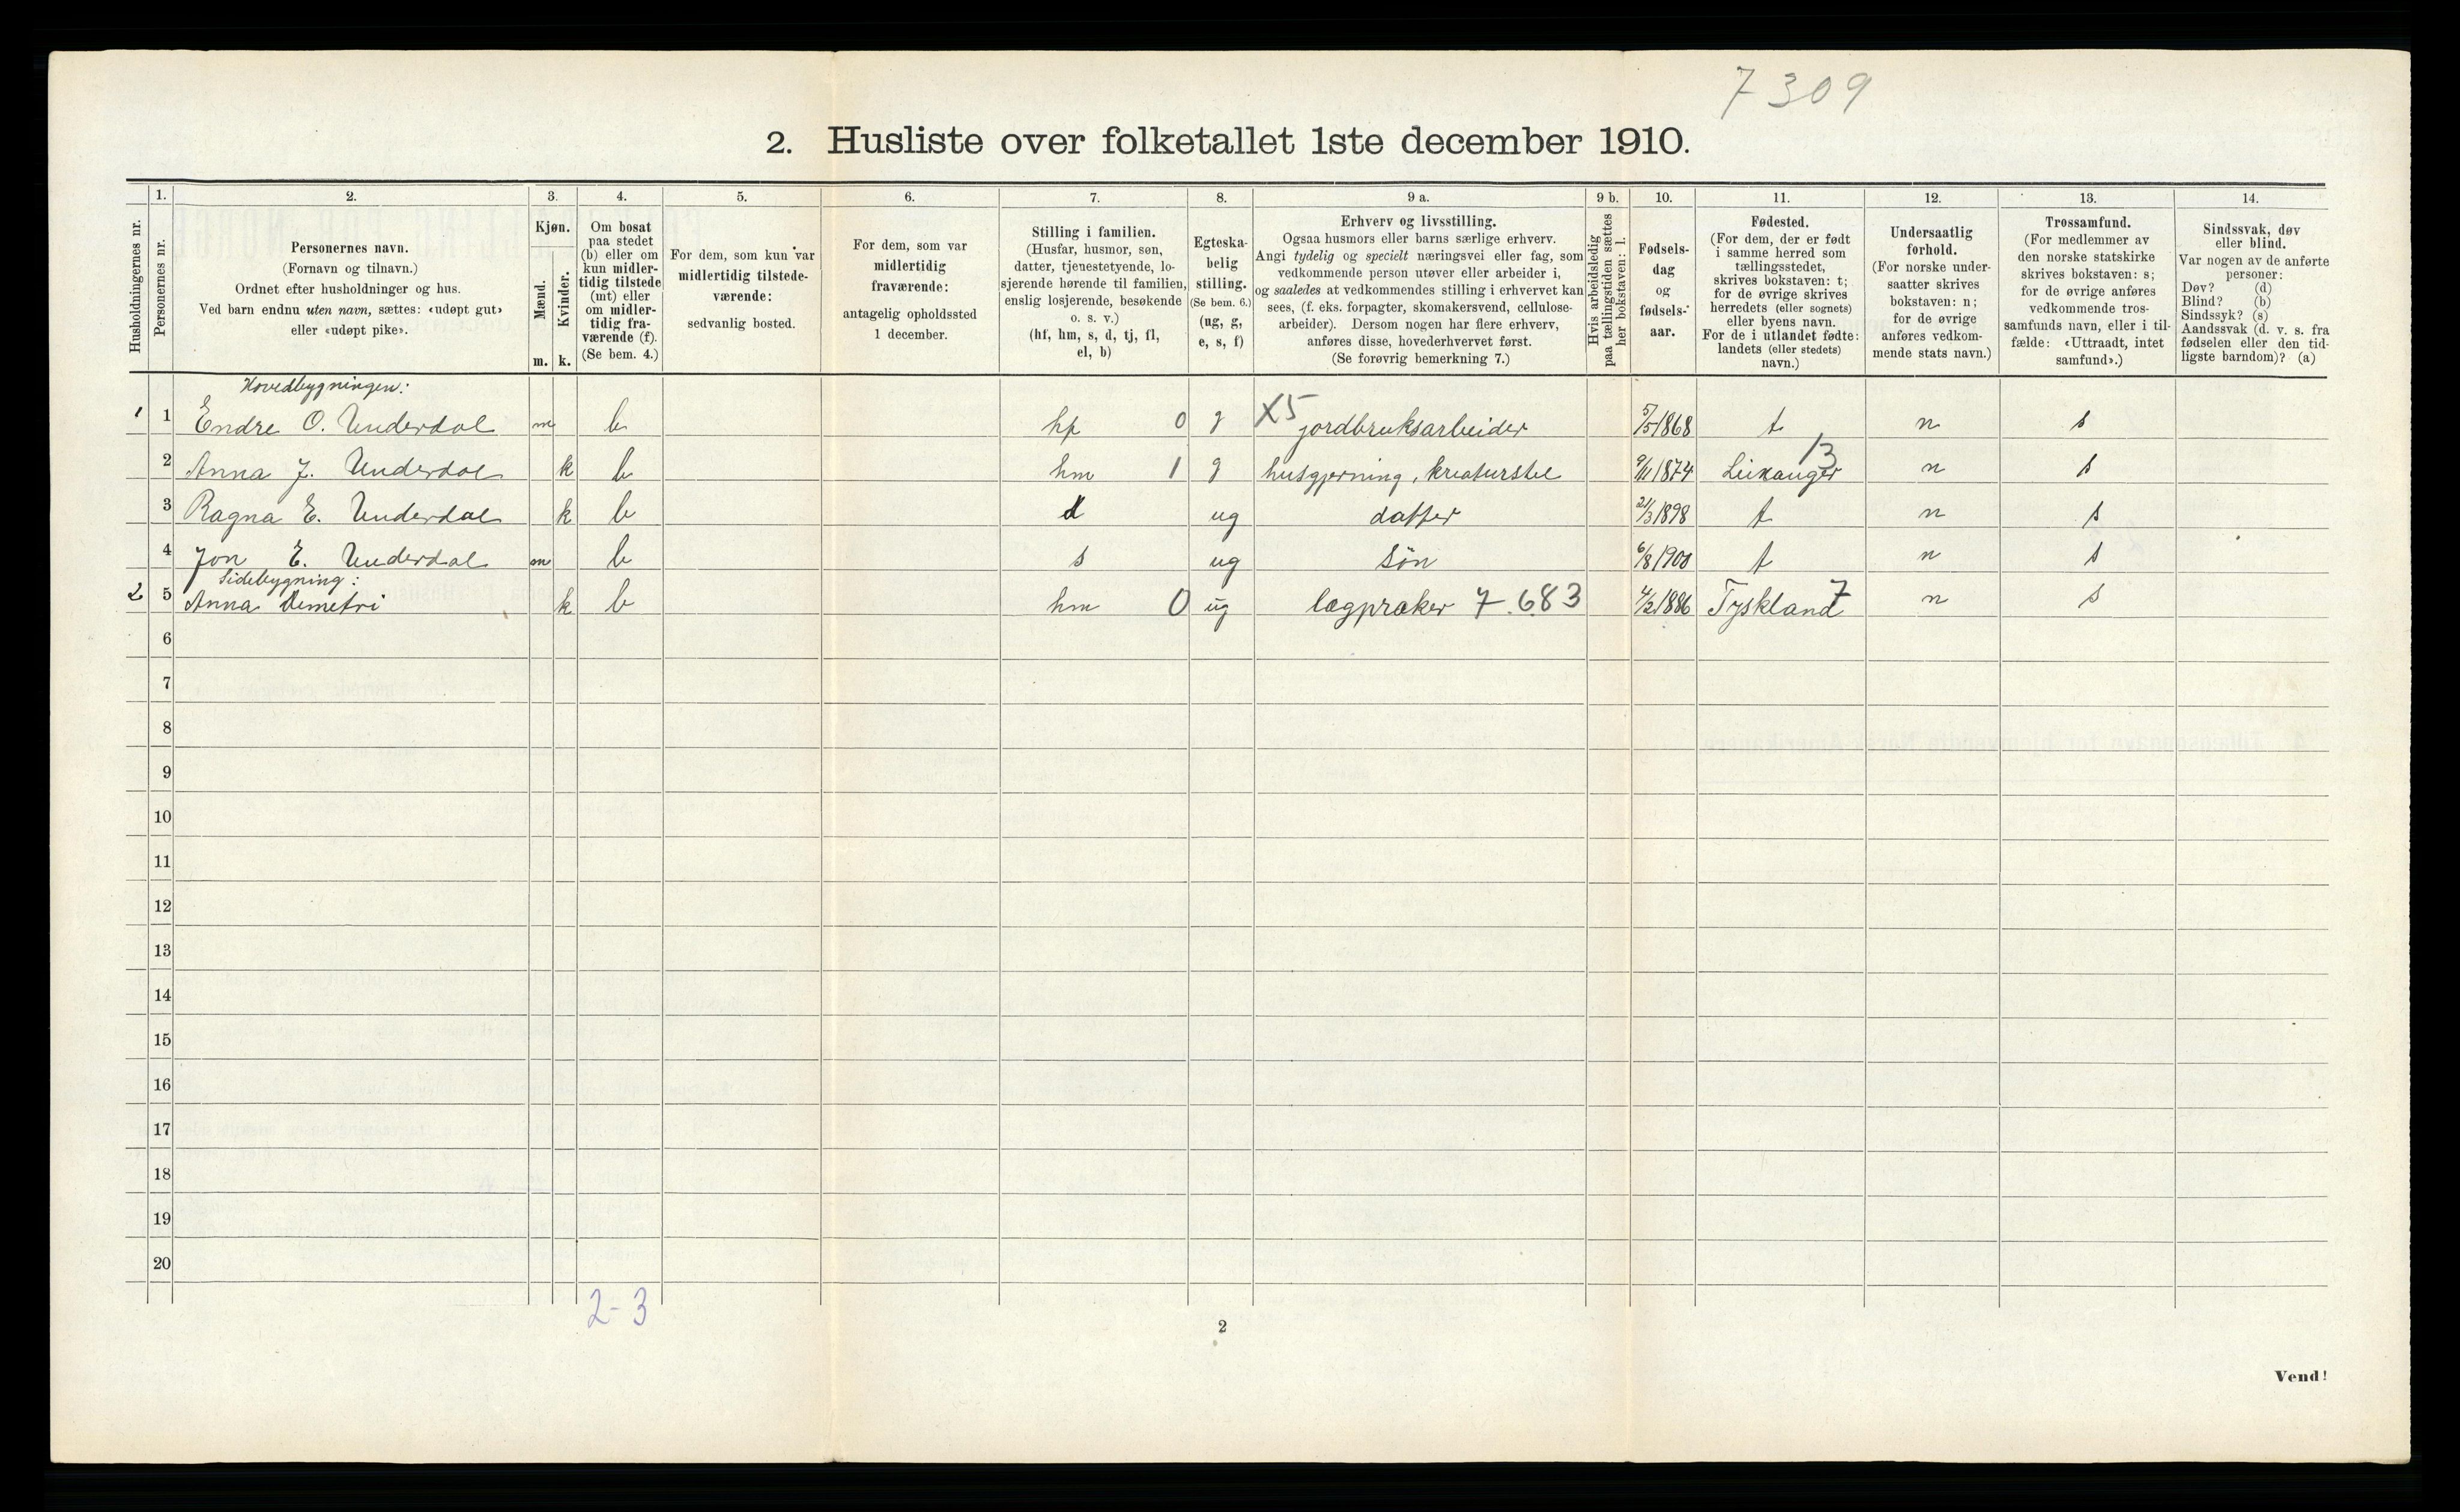 7309
2. Husliste over folketallet 1ste december 1910.
1. 2. 3. 4. 5. 6. 7. 8. 9 a. 9 b. 10. 11. 12. 13. 14.
Husholdningernes nr.
Personernes nr.
Personernes navn.
(Fornavn og tilnavn.)
Ordnet efter husholdninger og hus.
Ved barn endnu uten navn, sættes: «udøpt gut»
eller «udøpt pike».
Kjøn.
Mænd.
Kvinder.
m. k.
Om bosat
paa stedet
(b) eller om
kun midler-
tidig tilstede
(mt) eller
om midler-
tidig fra-
værende (f).
(Se bem. 4.)
For dem, som kun var
midlertidig tilstede-
værende:
sedvanlig bosted.
For dem, som var
midlertidig
fraværende:
antagelig opholdssted
1 december.
Stilling i familien.
(Husfar, husmor, søn,
datter, tjenestetyende, lo-
sjerende hørende til familien,
enslig losjerende, besøkende
o. s. v.)
(hf, hm, s, d, tj, fl,
el, b)
Egteska-
belig
stilling.
(Se bem. 6.)
(ug, g,
e, s, f)
Erhverv og livsstilling.
Ogsaa husmors eller barns særlige erhverv.
Angi tydelig og specielt næringsvei eller fag, som
vedkommende person utøver eller arbeider i,
og saaledes at vedkommendes stilling i erhvervet kan
sees, (f. eks. forpagter, skomakersvend, cellulose-
arbeider). Dersom nogen har flere erhverv,
anføres disse, hovederhvervet først.
(Se forøvrig bemerkning 7.)
Hvis arbeidsledig
paa tællingstiden sættes
her bokstaven: l.
Fødsels-
dag
og
fødsels-
aar.
Fødested.
(For dem, der er født
i samme herred som
tællingsstedet,
skrives bokstaven: t;
for de øvrige skrives
herredets (eller sognets)
eller byens navn.
For de i utlandet fødte:
landets (eller stedets)
navn.)
Undersaatlig
forhold.
(For norske under-
saatter skrives
bokstaven: n;
for de øvrige
anføres vedkom-
mende stats navn.)
Trossamfund.
(For medlemmer av
den norske statskirke
skrives bokstaven: s;
for de øvrige anføres
vedkommende tros-
samfunds navn, eller i til-
fælde: «Uttraadt, intet
samfund».)
Sindssvak, døv
eller blind.
Var nogen av de anførte
personer:
Døv? (d)
Blind? (b)
Sindssyk? (s)
Aandssvak (d. v. s. fra
fødselen eller den tid-
ligste barndom)? (a)
Hovedbygningen:
1 1 Endre O. Underdal m b hf 0 g X5 jordbruksarbeider 5/5 1868 t n s
2 Anna J. Underdal k b hm 1 g husgjerning, kreaturstel 9/11 1874 Leikanger 13 n s
3 Ragna E. Underdal k b d ug datter 21/3 1898 t n s
4 Jon E. Underdal m b s ug søn 6/8 1900 t n s
Sidebygning:
2 5 Anna Demetri k b hm 0 ug lægpræker 7.683 4/2 1886 Tyskland 7 n s
6
7
8
9
10
11
12
13
14
15
16
17
18
19
20
2-3
2
Vend!